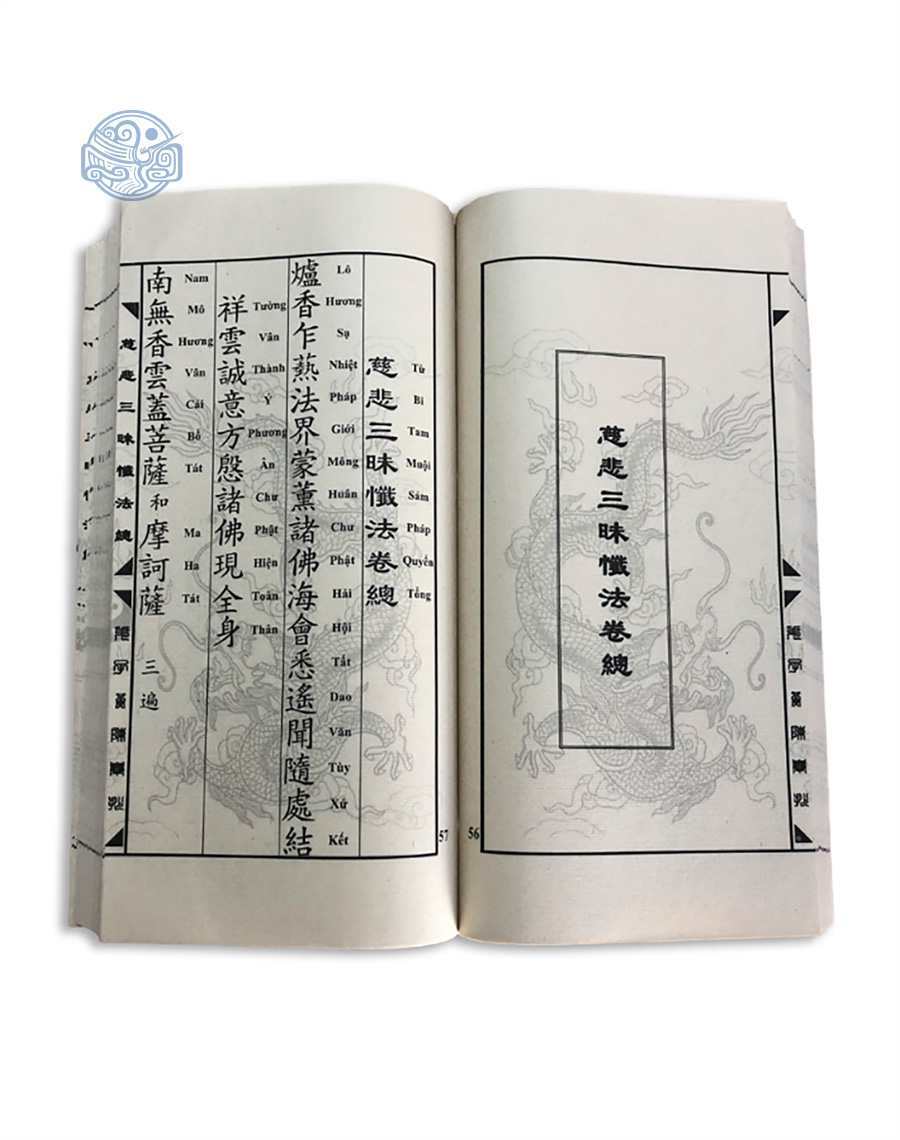 慈悲三昧懺法卷總
56
慈悲三昧懺法卷總
Từ Bi Tam Muội Sám Pháp Quyển Tổng
爐香乍爇法界蒙薰諸佛海會悉遙聞隨處結
Lô Hương Sạ Nhiệt Pháp Giới Mông Huân Chư Phật Hải Hội Tất Dao Văn Tùy Xứ Kết
祥雲誠意方慇諸佛現全身
Tường Vân Thành Ý Phương Ân Chư Phật Hiện Toàn Thân
南無香雲蓋菩薩和摩訶薩 三遍
Nam Mô Hương Vân Cái Bồ Tát Ma Ha Tát
慈悲三昧懺法總
57